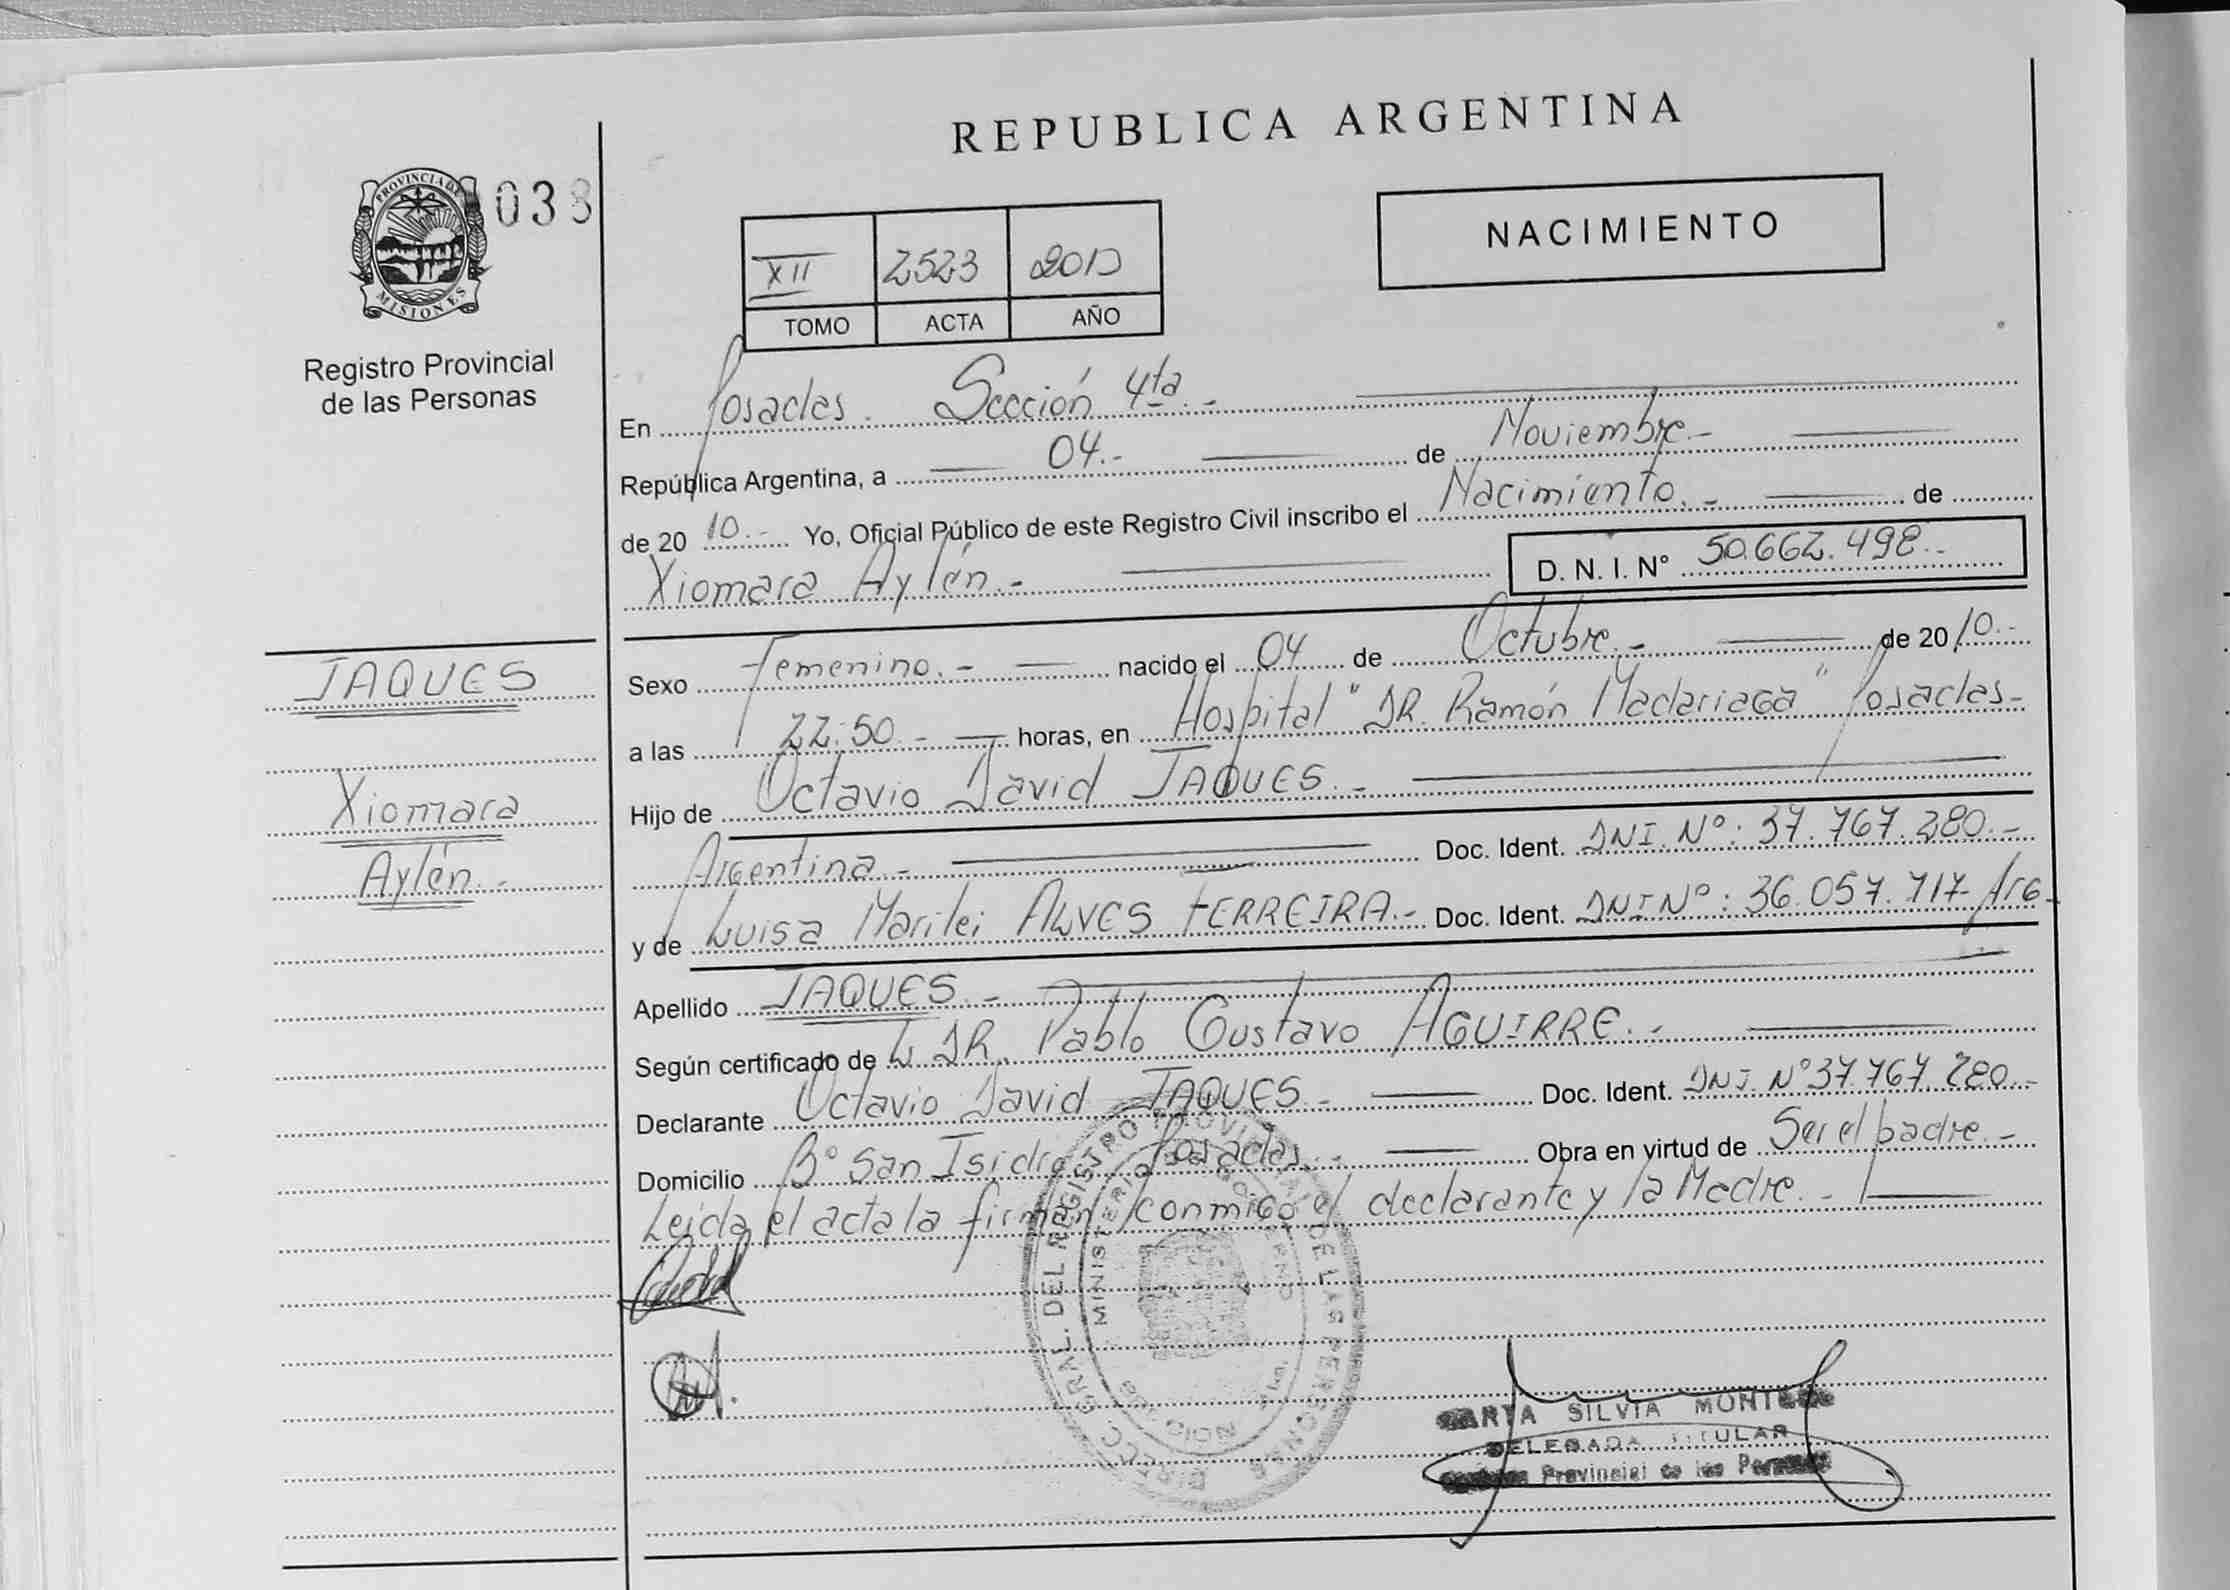 REPUBLICA ARGENTINA
PROVINCIA DE
MISIONES
038
Registro Provincial
de las Personas
NACIMIENTO
XII 2523 2010
TOMO ACTA AÑO
En Posadas. Sección 4ta.-
República Argentina, a 04.- de Noviembre.-
de 20 10.- Yo, Oficial Público de este Registro Civil inscribo el Nacimiento.- de
Xiomara Aylén.- D. N. I. Nº 50.662.498.-
JAQUES
Xiomara
Aylén.-
Sexo Femenino.- nacido el 04 de Octubre.- de 2010.-
a las 22:50.- horas, en Hospital "DR. Ramón Madariaga" Posadas-
Hijo de Octavio David JAQUES.-
Argentina.- Doc. Ident. DNI. Nº: 37.767.280.-
y de Luisa Marilei ALVES FERREIRA.- Doc. Ident. DNI Nº: 36.057.717- Arg-
Apellido JAQUES.-
Según certificado de L DR. Pablo Gustavo AGUIRRE.-
Declarante Octavio David JAQUES.- Doc. Ident. DNI. Nº 37.767.280.-
Domicilio Bº San Isidro Posadas.- Obra en virtud de Ser el padre.-
Leida el acta la firman conmigo el declarante y la Madre.-
DIRECC. GRAL. DEL REGISTRO PROVINCIAL DE LAS PERSONAS
MINISTERIO DE GOBIERNO
SILVIA
DELEGADA TITULAR
Provincial de las Personas